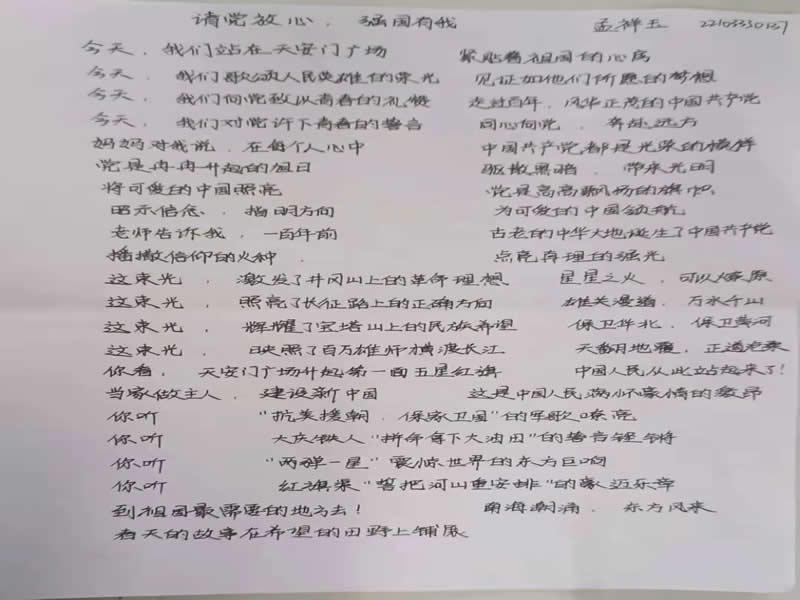 请党放心，强国有我 孟祥玉 22103330137
今天，我们站在天安门广场 紧贴着祖国的心房
今天，我们歌颂人民英雄的荣光 见证如他们所愿的梦想
今天，我们向党致以青春的礼赞 走过百年，风华正茂的中国共产党
今天，我们对党许下青春的誓言 同心向党，奔赴远方
妈妈对我说，在每个人心中 中国共产党都是光荣的模样
党是冉冉升起的旭日 驱散黑暗，带来光明
将可爱的中国照亮 党是高高飘扬的旗帜
昭示信念，指明方向 为可爱的中国领航
老师告诉我，一百年前 古老的中华大地诞生了中国共产党
播撒信仰的火种， 点亮真理的强光
这束光，激发了井冈山上的革命理想 星星之火，可以燎原
这束光，照亮了长征路上的正确方向 雄关漫道，万水千山
这束光，辉耀了宝塔山上的民族希望 保卫华北，保卫黄河
这束光，映照了百万雄师横渡长江 天翻地覆，正道沧桑
你看，天安门广场升起第一面五星红旗 中国人民从此站起来了！
当家做主人，建设新中国 这是中国人民满怀豪情的激昂
你听 “抗美援朝，保家卫国”的军歌嘹亮
你听 大庆铁人“拼命拿下大油田”的誓言铿锵
你听 “两弹一星”震惊世界的东方巨响
你听 红旗渠“誓把河山重安排”的豪迈乐章
到祖国最需要的地方去！ 南海潮涌，东方风来
春天的故事在希望的田野上铺展